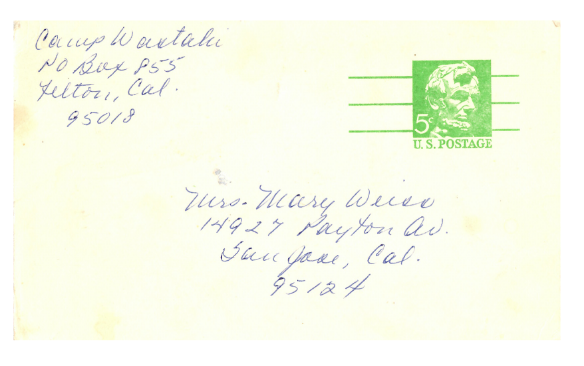 Camp Wastahi
PO Box 855
Felton, Cal.
95018
5¢
U.S. POSTAGE
Mrs. Mary Weiss
14927 Payton Av.
San Jose, Cal.
95124